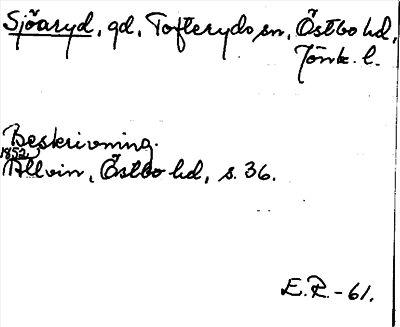 Sjöaryd, gd, Tofteryds sn, Östbo hd,
Jönk. l.
Beskrivning.
1852
Allvin, Östbo hd, s. 36.
E.R.-61.